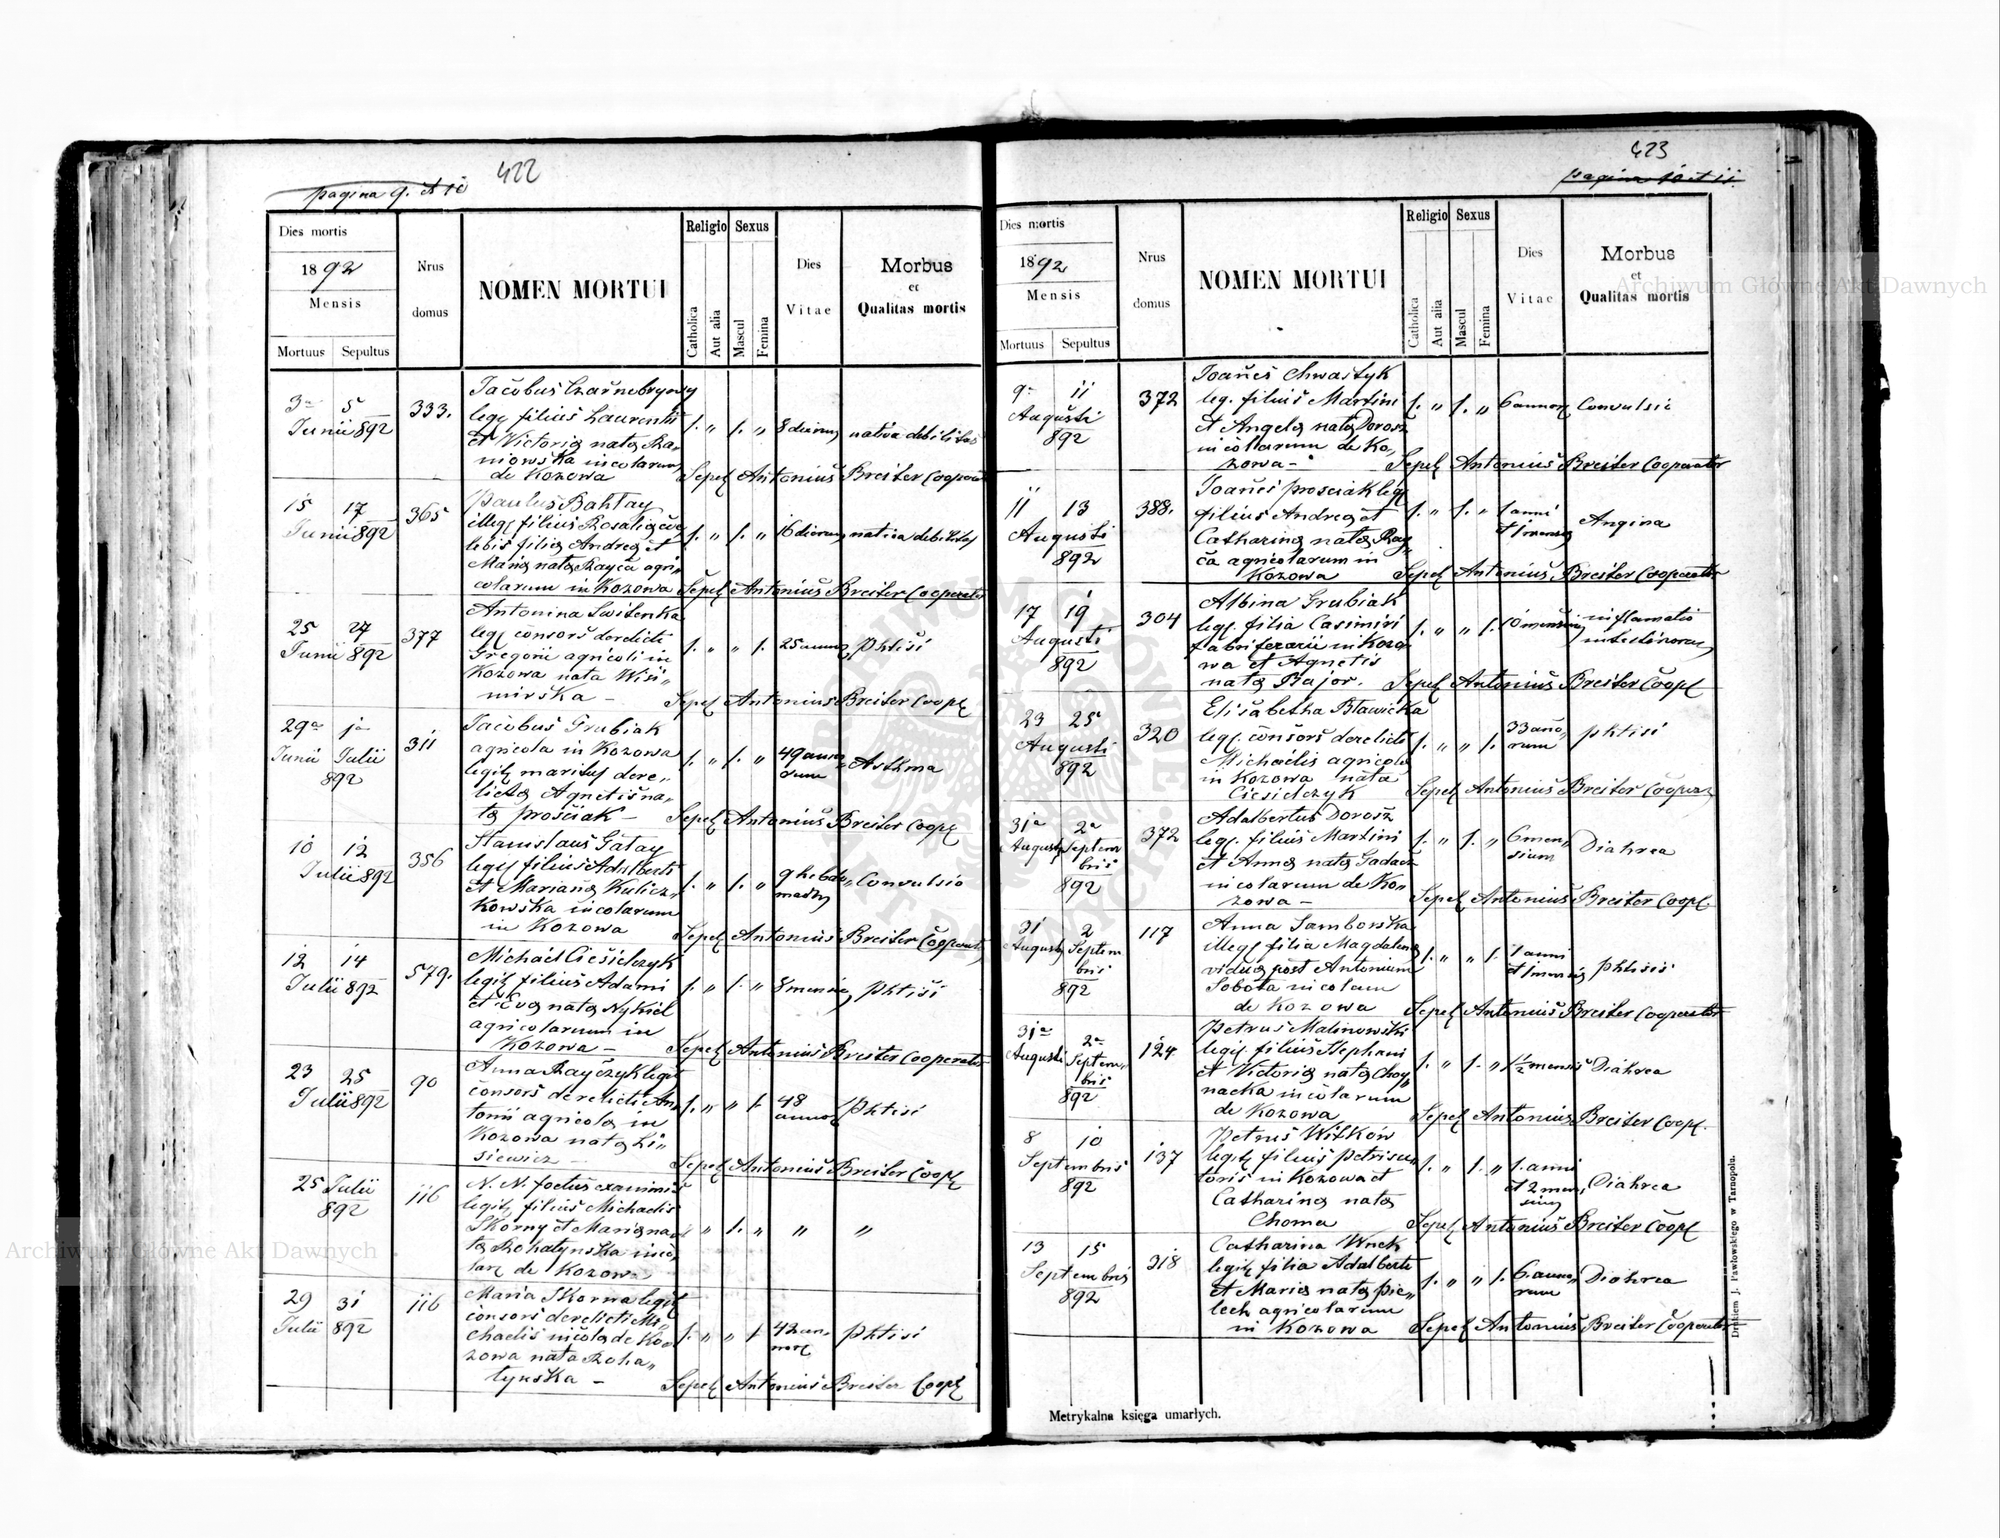 422
pagina 9. et 10
Dies mortis
1892
Mensis
Mortuus Sepultus
Nrus
domus
NOMEN MORTUI
Religio
Catholica
Aut alia
Sexus
Mascul
Femina
Dies
Vitae
Morbus
et
Qualitas mortis
3a 5
Junii 892
333.
Jacobus
leg. filius Laurentii
et Victoria nata Ra„
niowska incolarum
de Kozowa
8 dierum
nativa debilitas
Sepel Antonius Breiter Cooperat
15 17
Junii 892
365
Paulus Bahtay
illeg. filius Rosalia
lebis filia Andrea et
Maria nata Rayca agri„
colarum in Kozowa
16 dierum
nativa debilitas
Sepel Antonius Breiter Cooperator
25 27
Junii 892
377
Antonina Switenka
leg. consors derelicti
Gregorii agricoli in
Kozowa nata Wisi„
mirska –
25 annor
phtisi
Sepel Antonius Breiter Coopl
29a 1a
Junii Julii
892
311
Jacobus Grubiak
agricola in Kozowa
legit maritus dere„
licta Agnetis na„
ta prosciak –
49 anno
rum
Asthma
Sepel Antonius Breiter Coopl
10 12
Julii 892
356
Stanislaus Gatay
legit filius Adalberti
et Marianna Kulicz„
kowska incolarum
in Kozowa
9 hebdo„
madar
Convulsio
Sepel Antonius Breiter Cooperator
12 14
Julii 892
579.
Michael Ciesielczyk
legit filius Adami
et Eva nata Nykiel
agricolarum in
Kozowa –
8 mensi
phtisi
Sepel Antonius Breiter Cooperator
23 25
Julii 892
90
Anna Rayczyk legit
consors derelicti An
tonii agricola in
Kozowa nata Li„
siewicz –
48
annor
phtisi
Sepel Antonius Breiter Coopl
25 Julii
892
116
N. N. foetus exanimis
legit filius Michaelis
Skorny et Maria na„
ta Rohatynska inco
lar de Kozowa
29 31
Julii 892
116
Maria Skorna legit
consors derelicti Mi„
chaelis incola de Ko„
zowa nata Roha„
tynska –
42 an„
nor
phtisi
Sepel Antonius Breiter Coopl
423
pagina 10 et 11.
Dies mortis
1892
Mensis
Mortuus Sepultus
Nrus
domus
NOMEN MORTUI
Religio
Catholica
Aut alia
Sexus
Mascul
Femina
Dies
Vitae
Morbus
et
Qualitas mortis
9a 11
Augusti
892
372
Joanes Chwastyk
leg. filius Martini
et Angela nata Dorosz
incolarum de Ko„
zowa –
6 annor
Convulsio
Sepel Antonius Breiter Cooperator
11 13
Augusti
892
388.
Joanes prosciak leg
filius Andrea et
Catharina nata Ray„
ca agricolarum in
Kozowa
1 anni
et 1 mensis
Angina
Sepel Antonius Breiter Cooperator
17 19
Augusti
892
304
Albina Grubiak
leg. filia Casimiri
fabri ferarii in Kozo
wa et Agnetis
nata Major.
10 mensium
inflamatio
intestinorum
Sepel Antonius Breiter Coopl
23 25
Augusti
892
320
Elisabetha Blawicka
leg. consors derelicti
Michaelis agricola
in Kozowa nata
Ciesielczyk
33 ano„
rum
phtisi
Sepel Antonius Breiter Cooperr
31a 2a
Augusti Septem
bris
892
372
Adalbertus Dorosz
leg. filius Martini
et Anna nata Gadacz
incolarum de Ko„
zowa –
6 men„
sium
Diahrea
Sepel Antonius Breiter Coopl
31 2
Augusti Septem
bris
892
117
Anna Samborska
illeg filia Magdalena
vidua post Antonium
Sobota incolam
de Kozowa
1 anni
et 1 mensis
phtisis
Sepel Antonius Breiter Cooperator
31a 2a
Augusti Septem„
bris
892
124
Petrus Malinowski
legit filius Stephani
et Victoria nata Choy„
nacka incolarum
de Kozowa
1½ mensis
Diahrea
Sepel Antonius Breiter Coopl.
8 10
Septembris
892
137
Petrus Witkow
legit filius petri su„
toris in Kozowa et
Catharina nata
Choma
1. anni
et 2 men„
sium
Diahrea
Sepel Antonius Breiter Coopl
13 15
Septembris
892
318
Catharina Wnek
legit filia Adalberti
et Maria nata pie„
lech agricolarum
in Kozowa
6. anno„
rum
Diahrea
Sepel Antonius Breiter Cooperator
Metrykalna księga umarłych.
Drukiem J. Pawłowskiego w Tarnopolu.
Archiwum Główne Akt Dawnych
Archiwum Główne Akt Dawnych